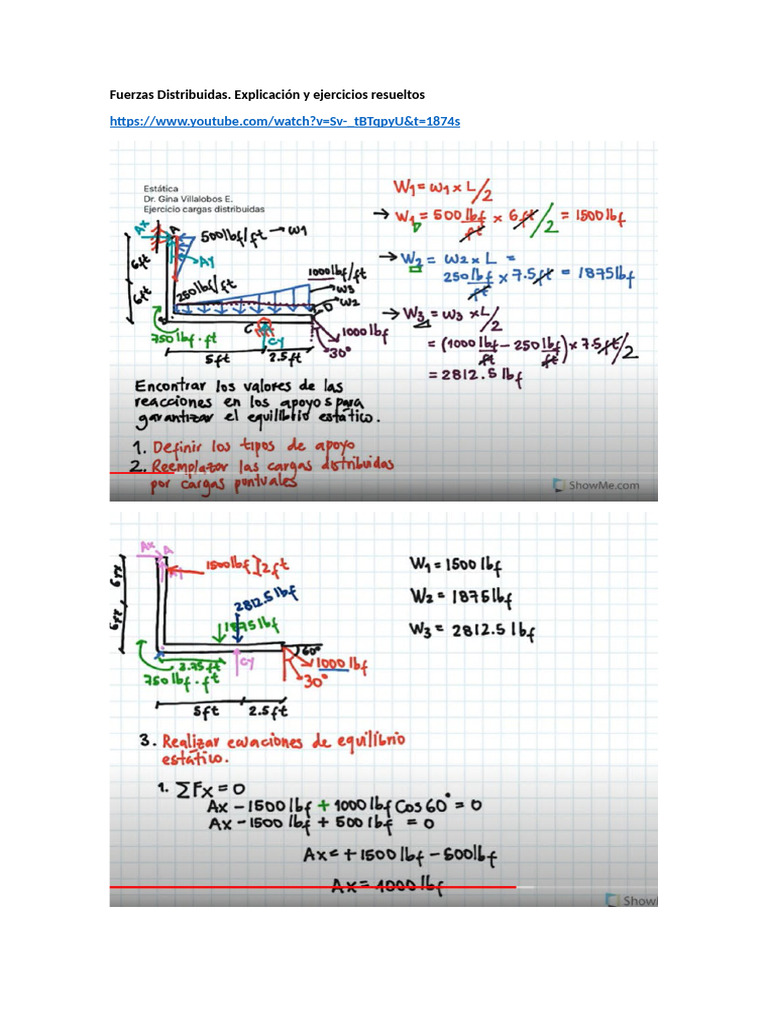 Fuerzas Distribuidas. Explicación y ejercicios resueltos
https://www.youtube.com/watch?v=Sv-_tBTqpyU&t=1874s
Estática
Dr. Gina Villalobos E.
Ejercicio cargas distribuidas
Ax A
500lbf/ft → w1
6ft
Ay
6ft
250lbf/ft
1000lbf/ft
w3
w2
D
750 lbf·ft
C
Cy
1000 lbf
30°
5ft 2.5ft
W1 = w1 x L/2
→ W1 = 500 lbf/ft x 6ft/2 = 1500 lbf
→ W2 = w2 x L =
250 lbf/ft x 7.5ft = 1875 lbf
→ W3 = w3 x L/2
= (1000 lbf/ft - 250 lbf/ft) x 7.5ft/2
= 2812.5 lbf
Encontrar los valores de las
reacciones en los apoyos para
garantizar el equilibrio estático.
1. Definir los tipos de apoyo
2. Reemplazar las cargas distribuidas
por cargas puntuales
ShowMe.com
Ax A
1500lbf 2ft
6ft, 6ft
2812.5 lbf
1875 lbf
60°
3.75 ft
Cy
1000 lbf
750 lbf·ft
30°
5ft 2.5ft
W1 = 1500 lbf
W2 = 1875 lbf
W3 = 2812.5 lbf
3. Realizar ecuaciones de equilibrio
estático.
1. ΣFx = 0
Ax - 1500 lbf + 1000 lbf Cos 60° = 0
Ax - 1500 lbf + 500 lbf = 0
Ax = + 1500 lbf - 500lbf
Ax = 1000 lbf
Show